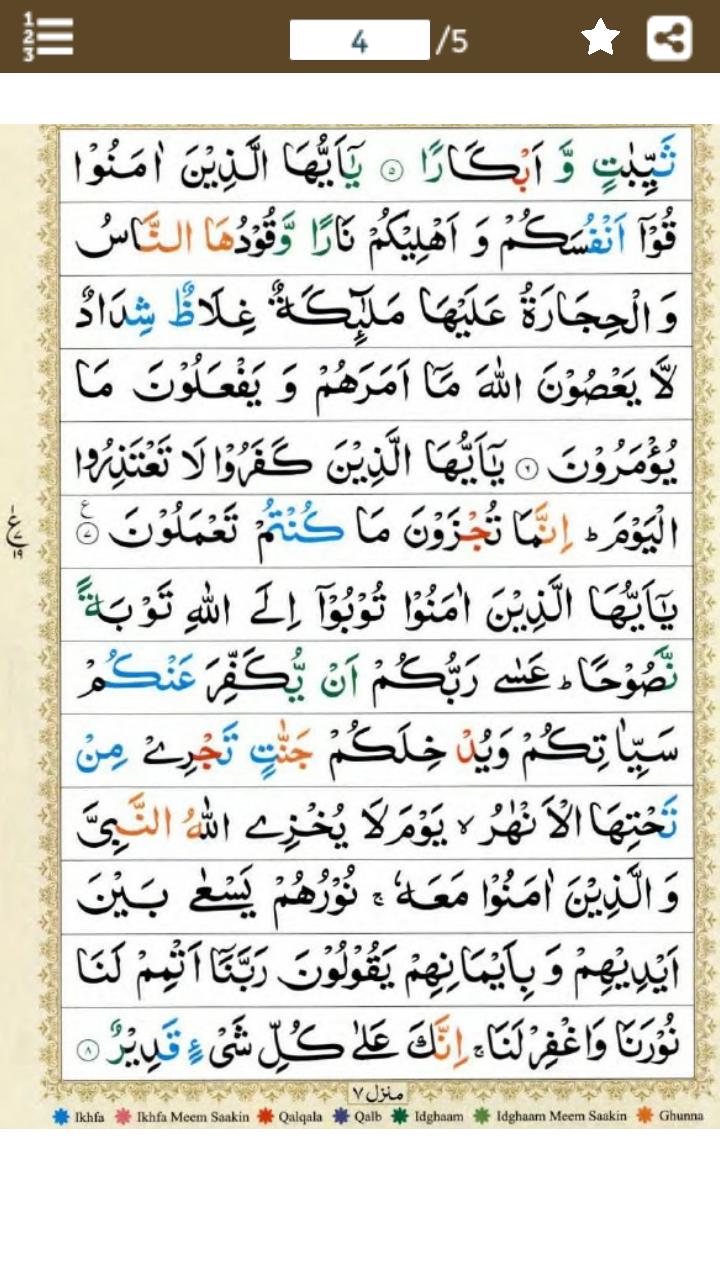 1
2
3
4 /5
ثَيِّبٰتٍ وَّ اَبْكَارًا ۝۵ يٰۤاَيُّهَا الَّذِيْنَ اٰمَنُوْا
قُوْۤا اَنْفُسَكُمْ وَ اَهْلِيْكُمْ نَارًا وَّقُوْدُهَا النَّاسُ
وَ الْحِجَارَةُ عَلَيْهَا مَلٰٓئِكَةٌ غِلَاظٌ شِدَادٌ
لَّا يَعْصُوْنَ اللّٰهَ مَاۤ اَمَرَهُمْ وَ يَفْعَلُوْنَ مَا
يُؤْمَرُوْنَ ۝۶ يٰۤاَيُّهَا الَّذِيْنَ كَفَرُوْا لَا تَعْتَذِرُوا
الْيَوْمَ ؕ اِنَّمَا تُجْزَوْنَ مَا كُنْتُمْ تَعْمَلُوْنَ ۝۷ ع
ع ۷ ۱۹
يٰۤاَيُّهَا الَّذِيْنَ اٰمَنُوْا تُوْبُوْۤا اِلَى اللّٰهِ تَوْبَةً
نَّصُوْحًا ؕ عَسٰى رَبُّكُمْ اَنْ يُّكَفِّرَ عَنْكُمْ
سَيِّاٰتِكُمْ وَيُدْخِلَكُمْ جَنّٰتٍ تَجْرِيْ مِنْ
تَحْتِهَا الْاَنْهٰرُ ۙ يَوْمَ لَا يُخْزِي اللّٰهُ النَّبِيَّ
وَ الَّذِيْنَ اٰمَنُوْا مَعَهٗ ۚ نُوْرُهُمْ يَسْعٰى بَيْنَ
اَيْدِيْهِمْ وَ بِاَيْمَانِهِمْ يَقُوْلُوْنَ رَبَّنَاۤ اَتْمِمْ لَنَا
نُوْرَنَا وَاغْفِرْ لَنَا ۚ اِنَّكَ عَلٰى كُلِّ شَيْءٍ قَدِيْرٌ ۝۸
منزل ۷
Ikhfa Ikhfa Meem Saakin Qalqala Qalb Idghaam Idghaam Meem Saakin Ghunna